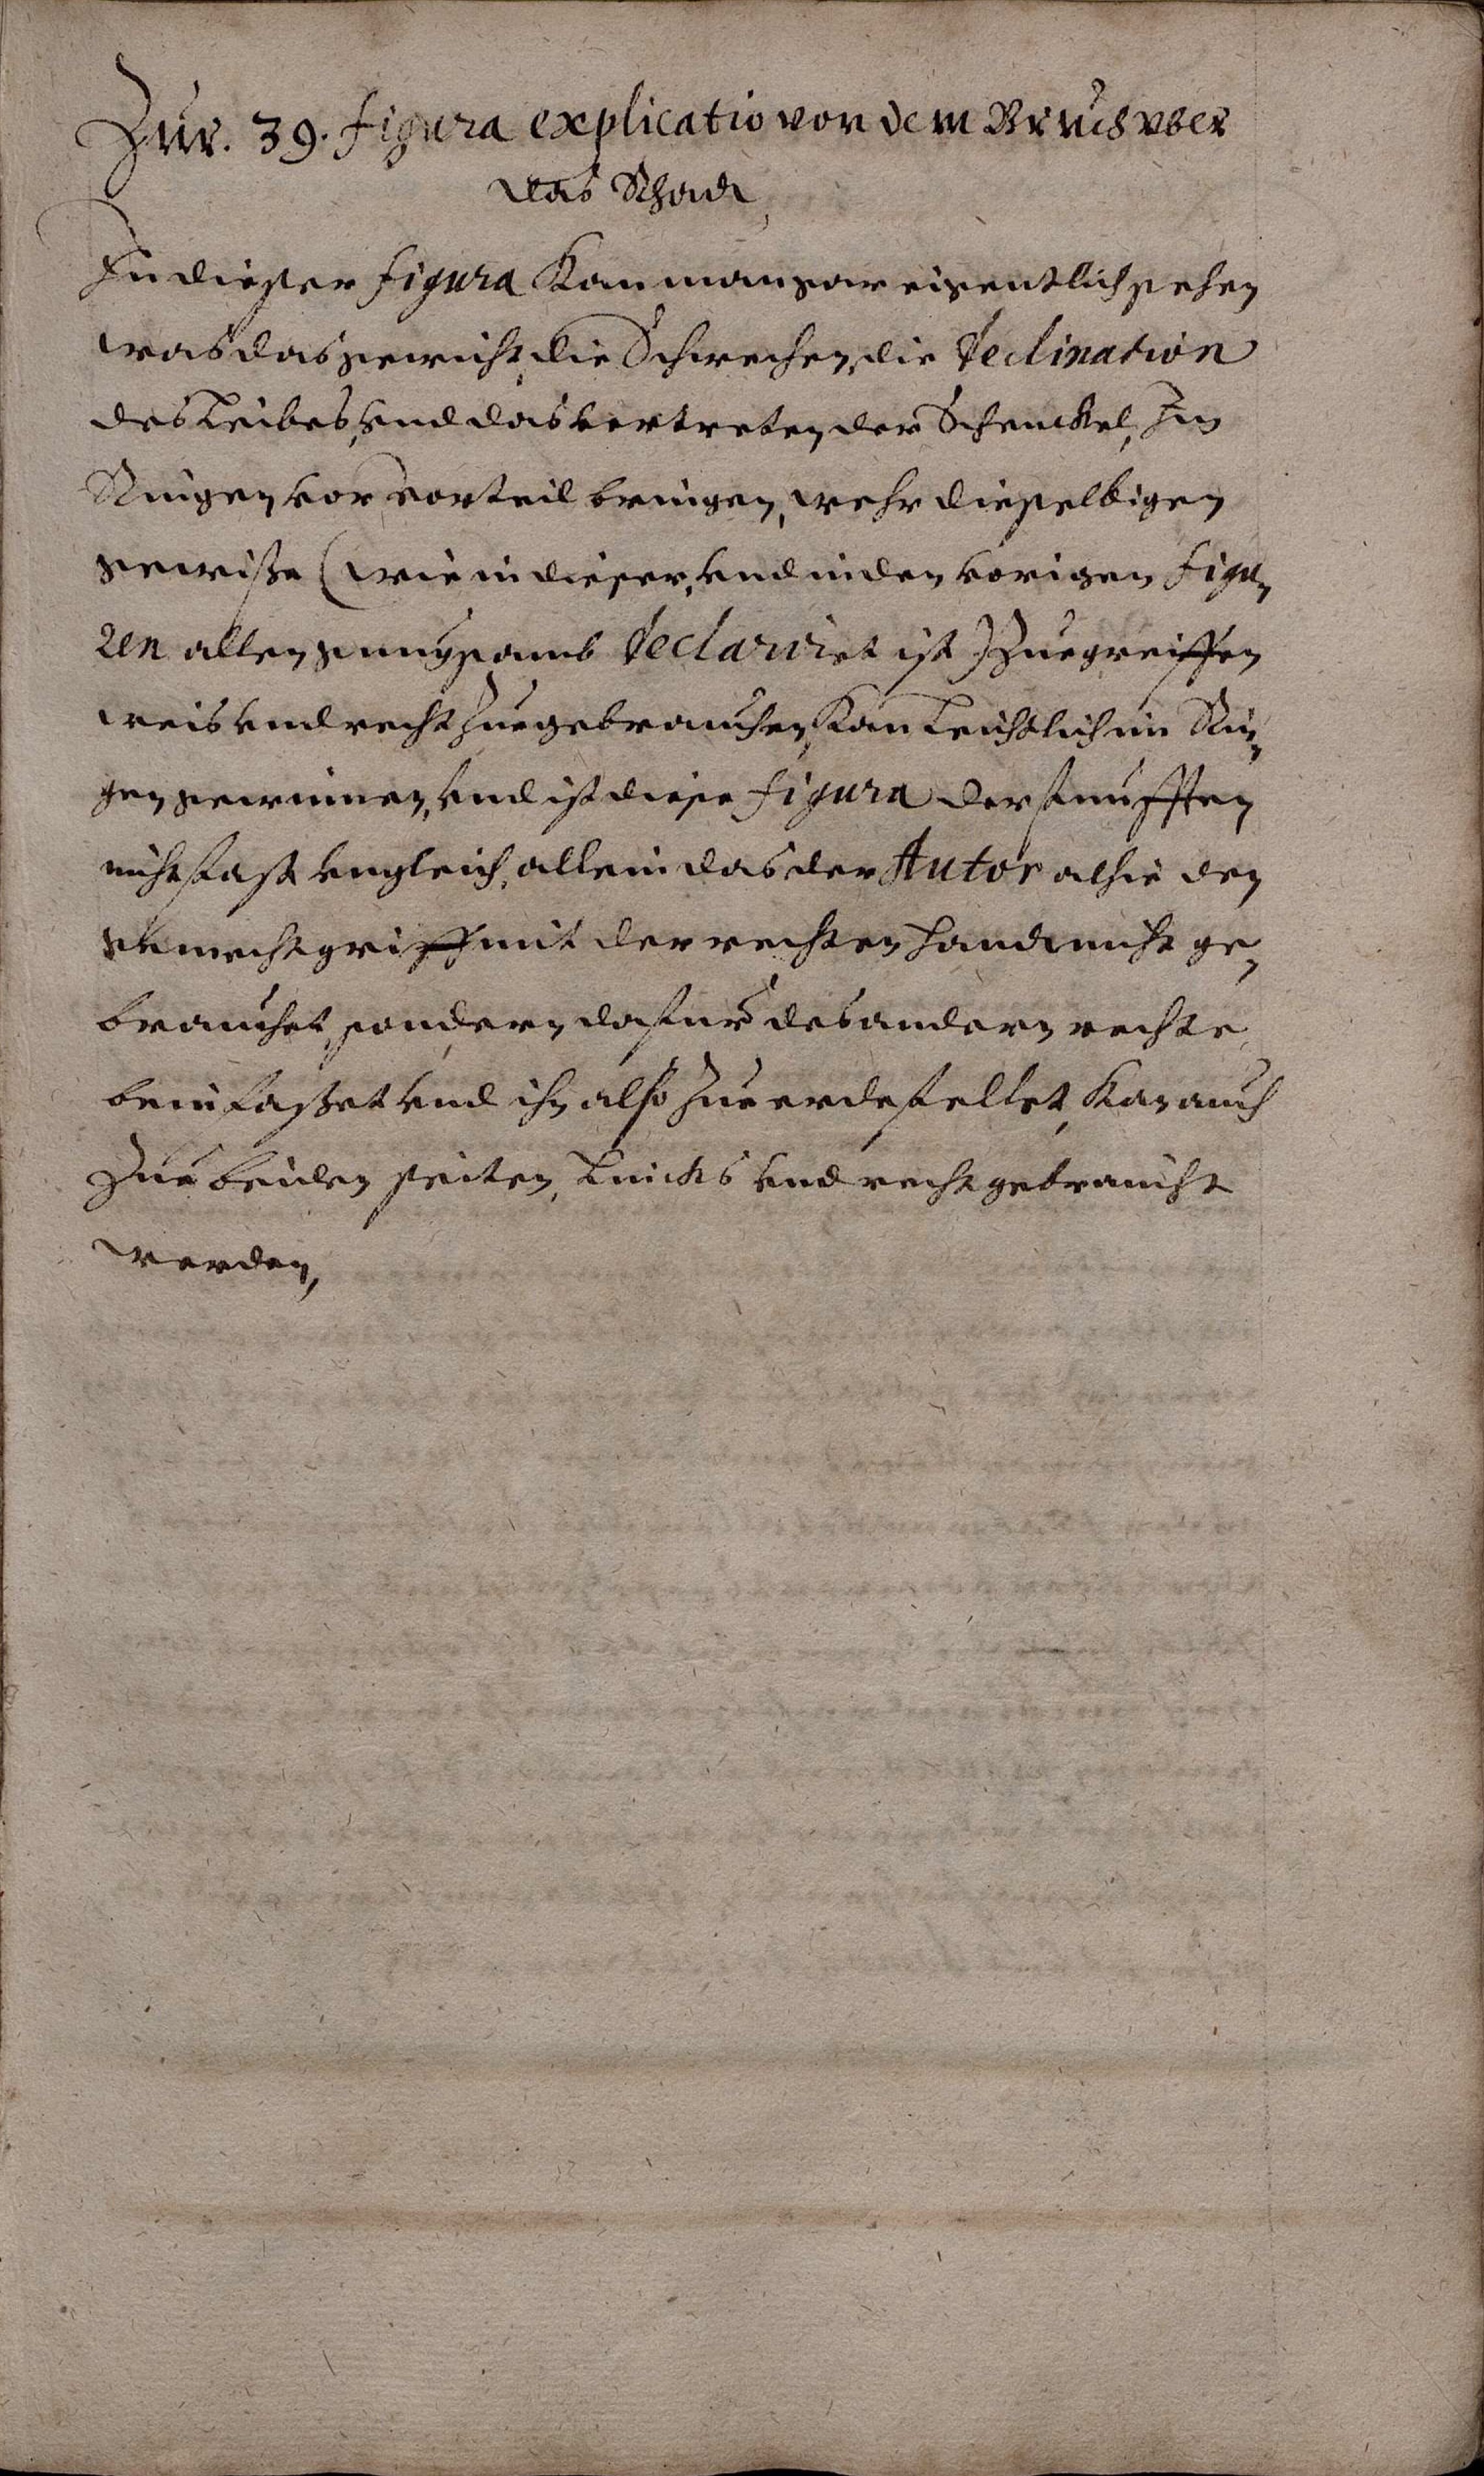 Zur. 39. figura explicatio von dem Bruch vber
das Schod,
In dieser figura kan man gar eigentlich sehen
was das gewicht, die Schwechen, die declination
des Leibes, vnd das vertreten der Schenckel, Im
Ringen vor vorteil bringen, wehr dieselbigen
gewisse (wie in dieser, vnd in den vorigen figu,
ren allen gnugsamb declariret ist) Zue greiffen
weis vnd recht Zue gebrauchen, kan Leichtlich im Rin,
gen gewinnen, vnd ist diese figura der funfften
nicht fast vngleich, allein das der Autor alhie den
gemecht griff mit der rechten handt nicht ge,
brauchet, sondern dafur des andern rechte
bein fasset vnd ihn also Zue erde fellet, Kan auch
Zue beiden seiten, Linchs vnd recht gebraucht
werden,